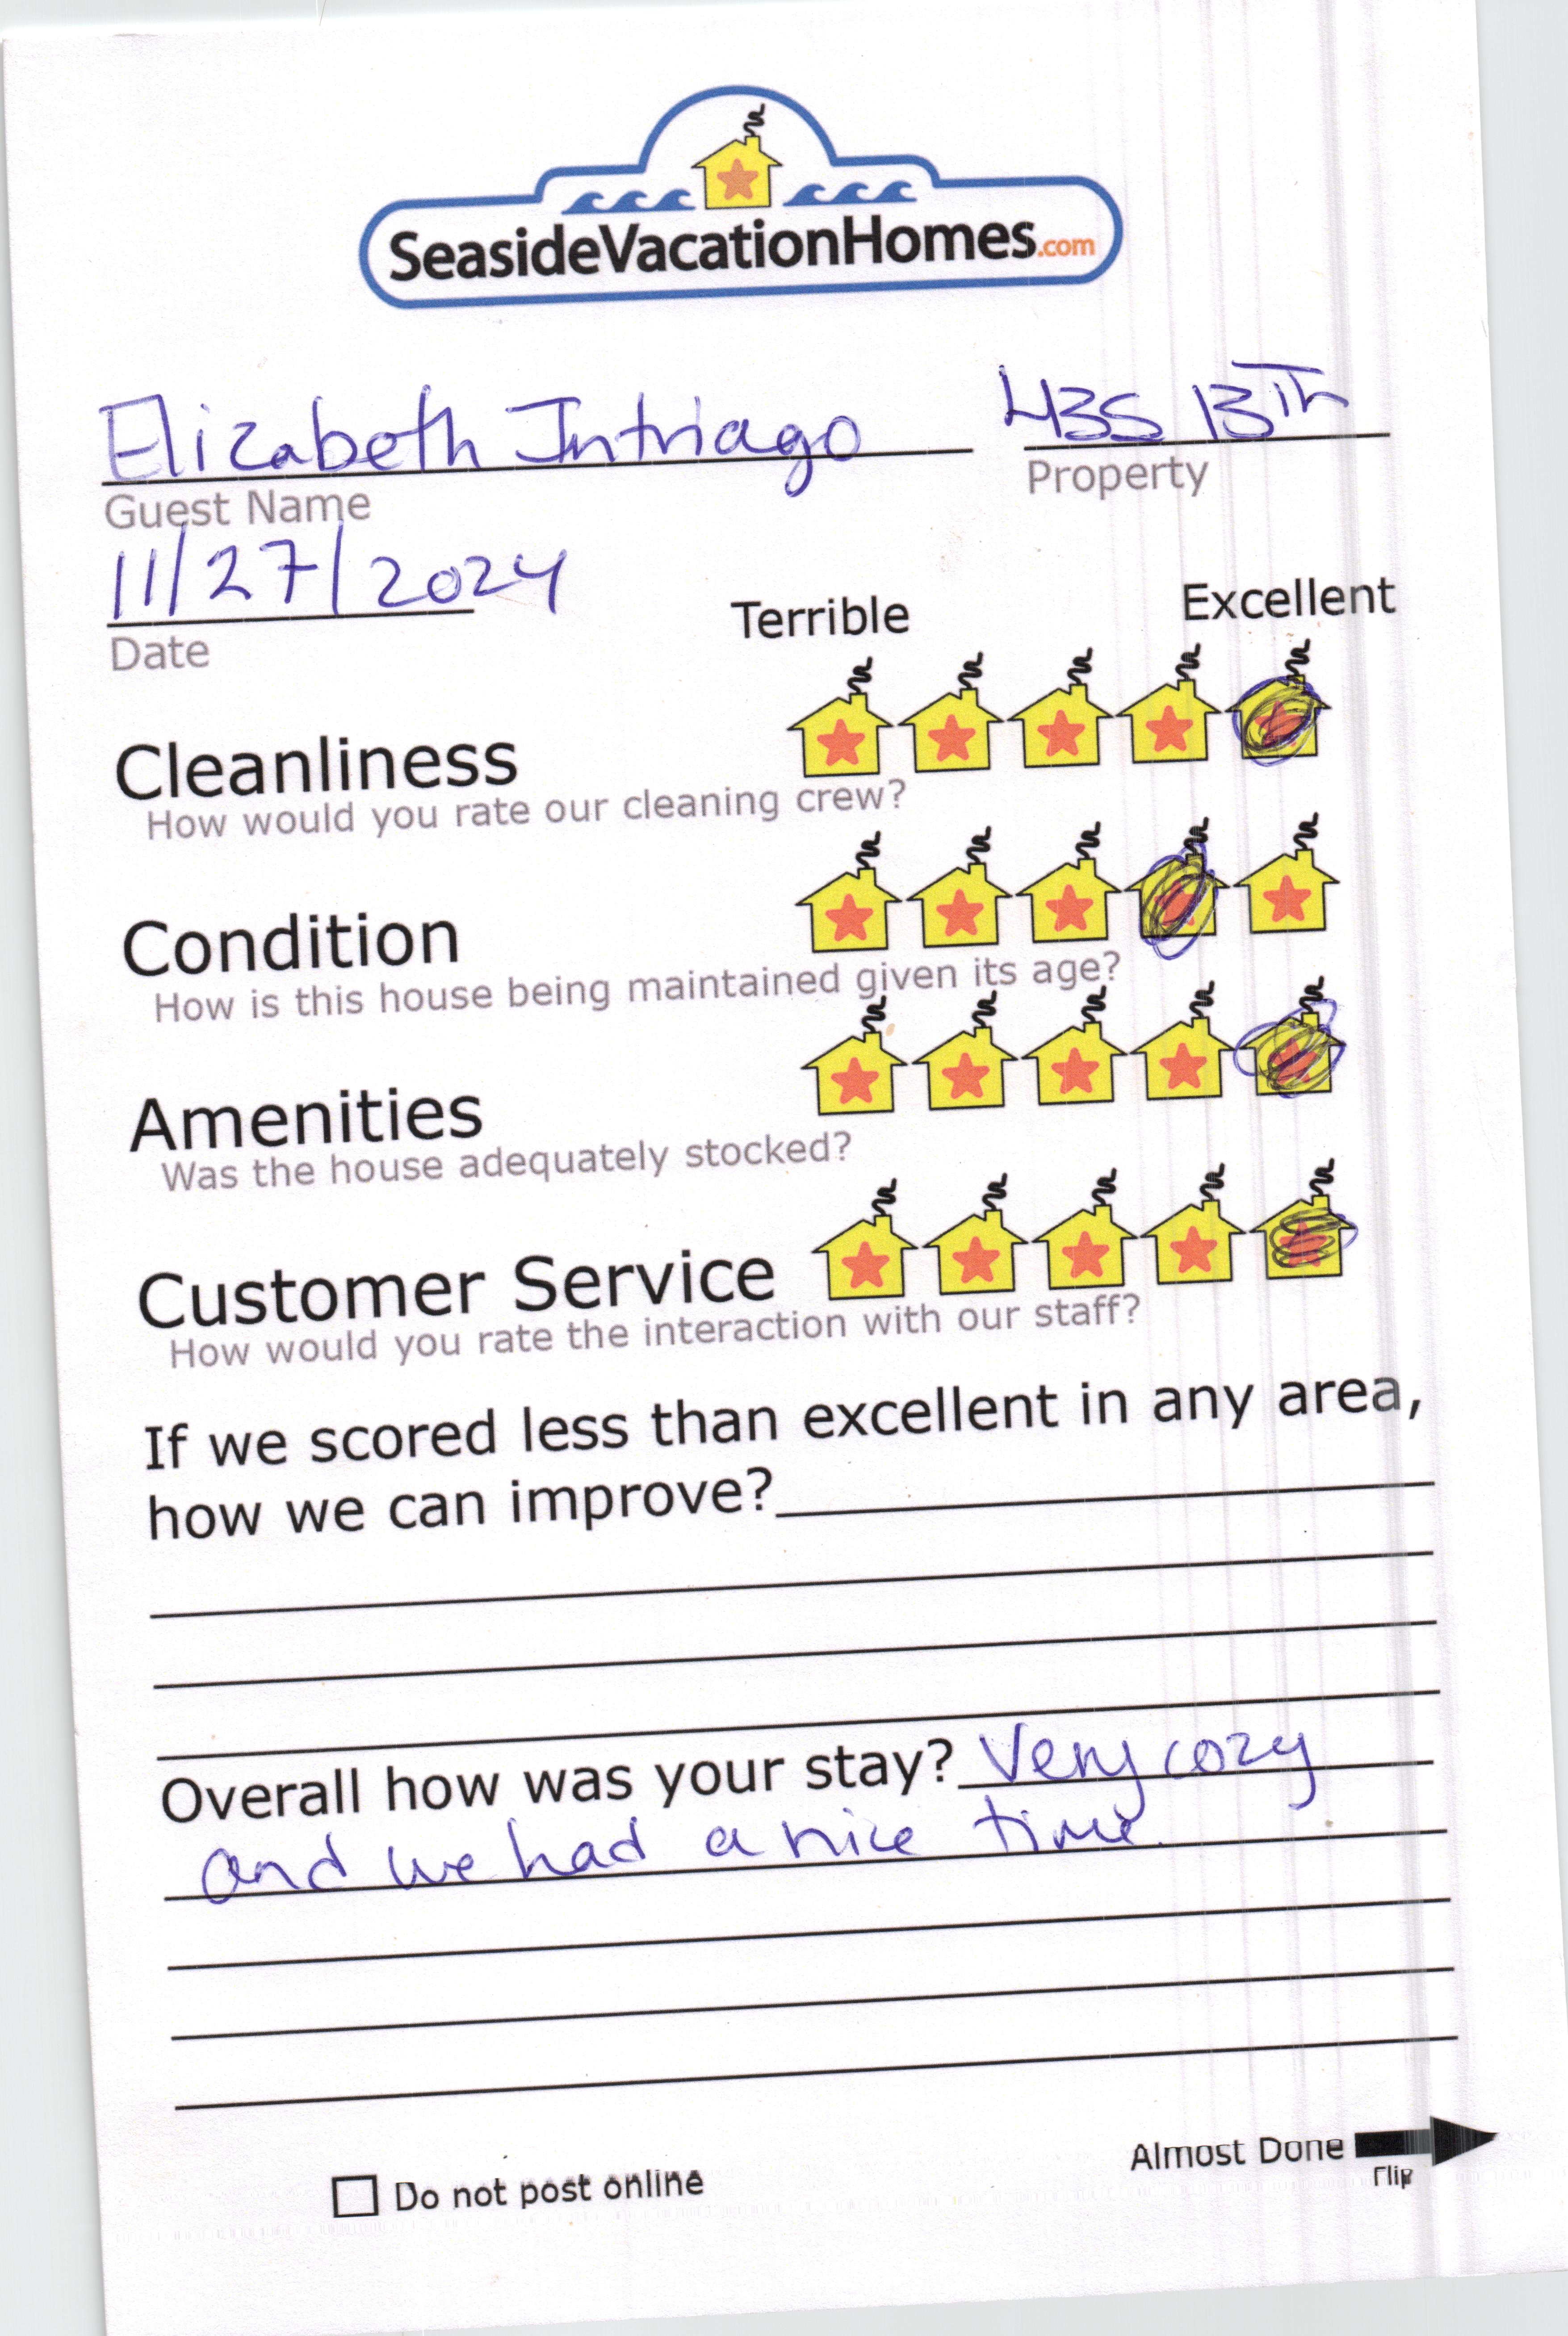 SeasideVacationHomes.com
Elizabeth Intriago 435 13Th
Guest Name Property
11/27/2024
Date
Terrible Excellent
Cleanliness
How would you rate our cleaning crew?
Condition
How is this house being maintained given its age?
Amenities
Was the house adequately stocked?
Customer Service
How would you rate the interaction with our staff?
If we scored less than excellent in any area,
how we can improve?
Overall how was your stay? Very cozy
and we had a nice time.
Almost Done
Flip
Do not post online